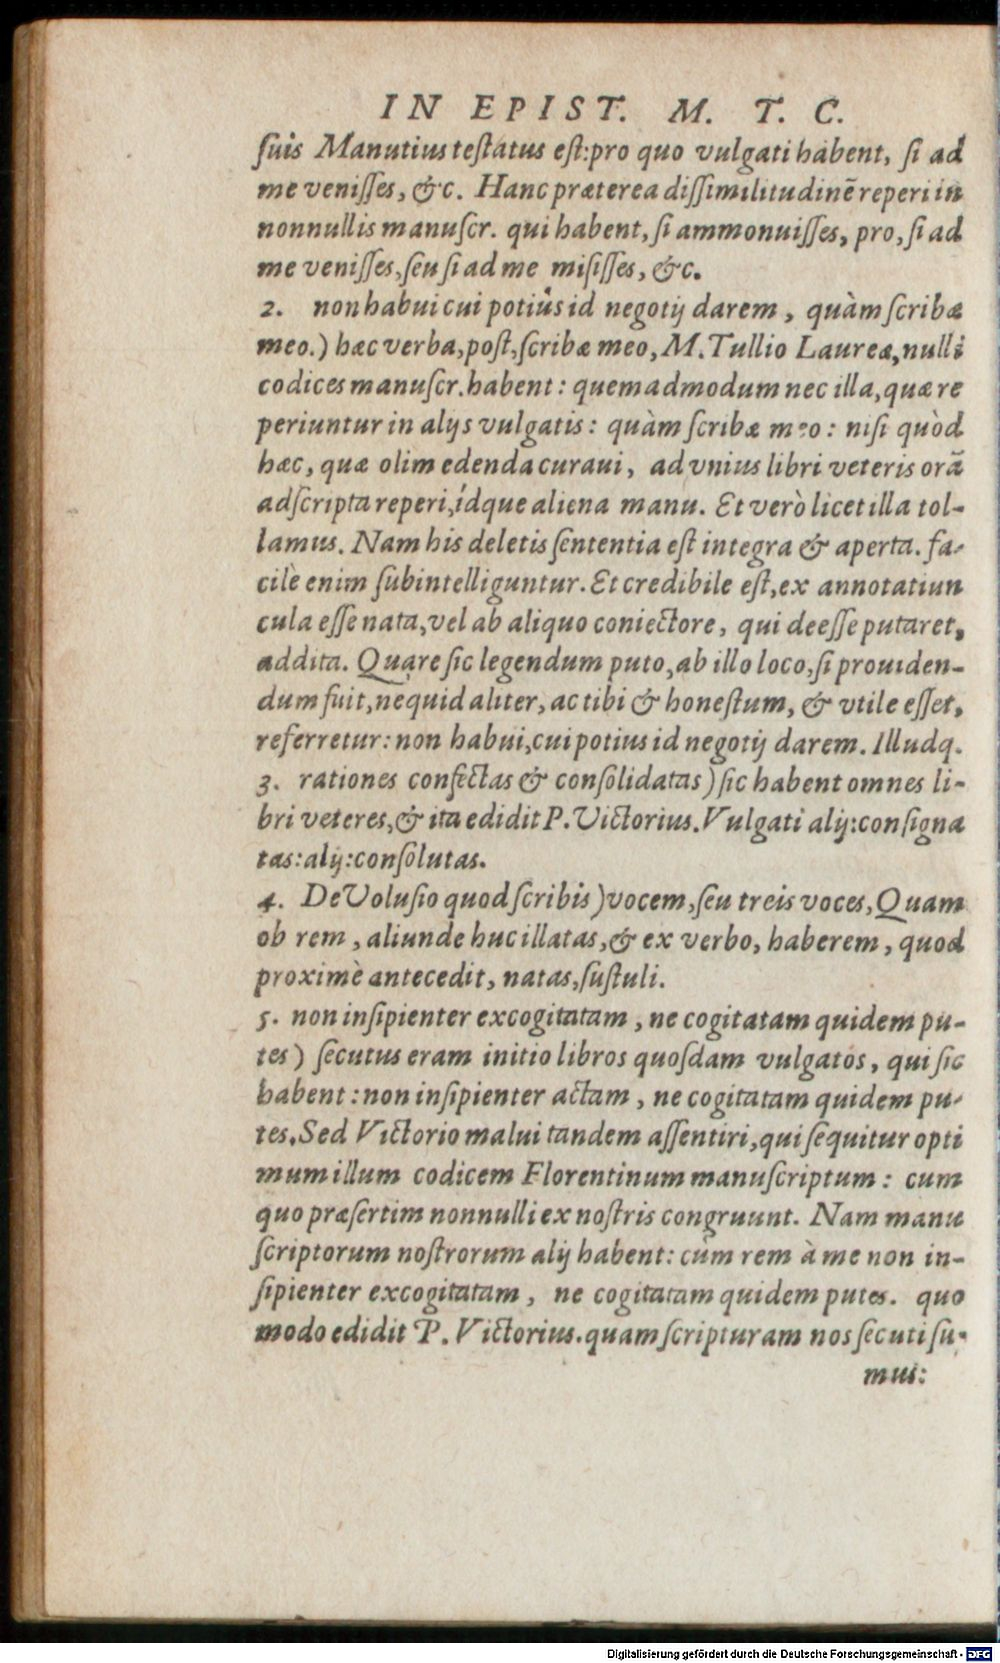 IN EPIST. M. T. C.
ſuis Manutius teſtatus eſt: pro quo vulgati habent, ſi ad
me veniſſes, &c. Hanc præterea diſſimilitudinē reperi in
nonnullis manuſcr. qui habent, ſi ammonuiſſes, pro, ſi ad
me veniſſes, ſeu ſi ad me miſiſſes, &c.
2. non habui cui potiùs id negotij darem, quàm ſcribæ
meo.) hæc verba, poſt, ſcribæ meo, M. Tullio Laureæ, nulli
codices manuſcr. habent: quemadmodum nec illa, quæ re
periuntur in alijs vulgatis: quàm ſcribæ meo: niſi quòd
hæc, quæ olim edenda curaui, ad vnius libri veteris orā
adſcripta reperi, ídque aliena manu. Et verò licet illa tol-
lamus. Nam his deletis ſententia eſt integra & aperta. fa-
cilè enim ſubintelliguntur. Et credibile eſt, ex annotatiun
cula eſſe nata, vel ab aliquo coniectore, qui deeſſe putaret,
addita. Quare ſic legendum puto, ab illo loco, ſi prouiden-
dum fuit, nequid aliter, ac tibi & honeſtum, & vtile eſſet,
referretur: non habui, cui potius id negotij darem. Illudq.
3. rationes confectas & conſolidatas) ſic habent omnes li-
bri veteres, & ita edidit P. Victorius. Vulgati alij: conſigna
tas: alij: conſolutas.
4. De Voluſio quod ſcribis) vocem, ſeu treis voces, Quam
ob rem, aliunde huc illatas, & ex verbo, haberem, quod
proximè antecedit, natas, ſuſtuli.
5. non inſipienter excogitatam, ne cogitatam quidem pu-
tes) ſecutus eram initio libros quoſdam vulgatos, qui ſic
habent: non inſipienter actam, ne cogitatam quidem pu-
tes. Sed Victorio malui tandem aſſentiri, qui ſequitur opti
mum illum codicem Florentinum manuſcriptum: cum
quo præſertim nonnulli ex noſtris congruunt. Nam manu
ſcriptorum noſtrorum alij habent: cùm rem à me non in-
ſipienter excogitatam, ne cogitatam quidem putes. quo
modo edidit P. Victorius. quam ſcripturam nos ſecuti ſu-
mus:
Digitalisierung gefördert durch die Deutsche Forschungsgemeinschaft - DFG